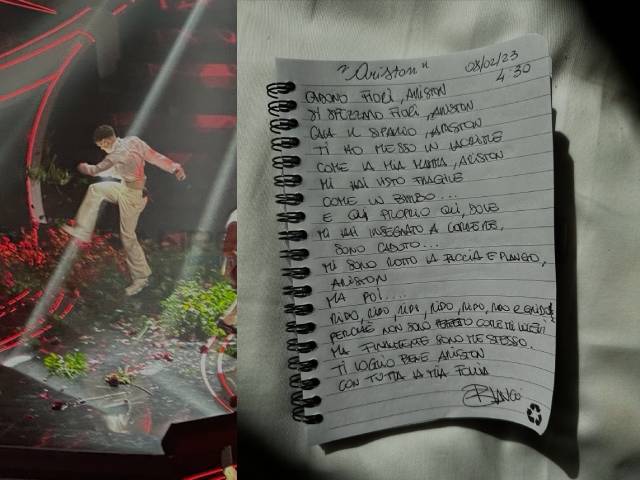 "Ariston"
08/02/23
4:30
CADONO FIORI, ARISTON
SI SPEZZANO FIORI, ARISTON
CALA IL SIPARIO, ARISTON
TI HO MESSO IN LACRIME
COME LA MIA MAMMA, ARISTON
MI HAI VISTO FRAGILE
COME UN BIMBO...
E QUI, PROPRIO QUI, DOVE
MI HAI INSEGNATO A CORRERE,
SONO CADUTO...
MI SONO ROTTO LA FACCIA E PIANGO,
ARISTON
MA POI....
RIDO, RIDO, RIDO, RIDO, RIDO, RIDO E GRIDO
PERCHÉ NON SONO COME MI
MA FINALMENTE SONO ME STESSO.
TI VOGLIO BENE ARISTON
CON TUTTA LA MIA FOLLIA
BLANCO